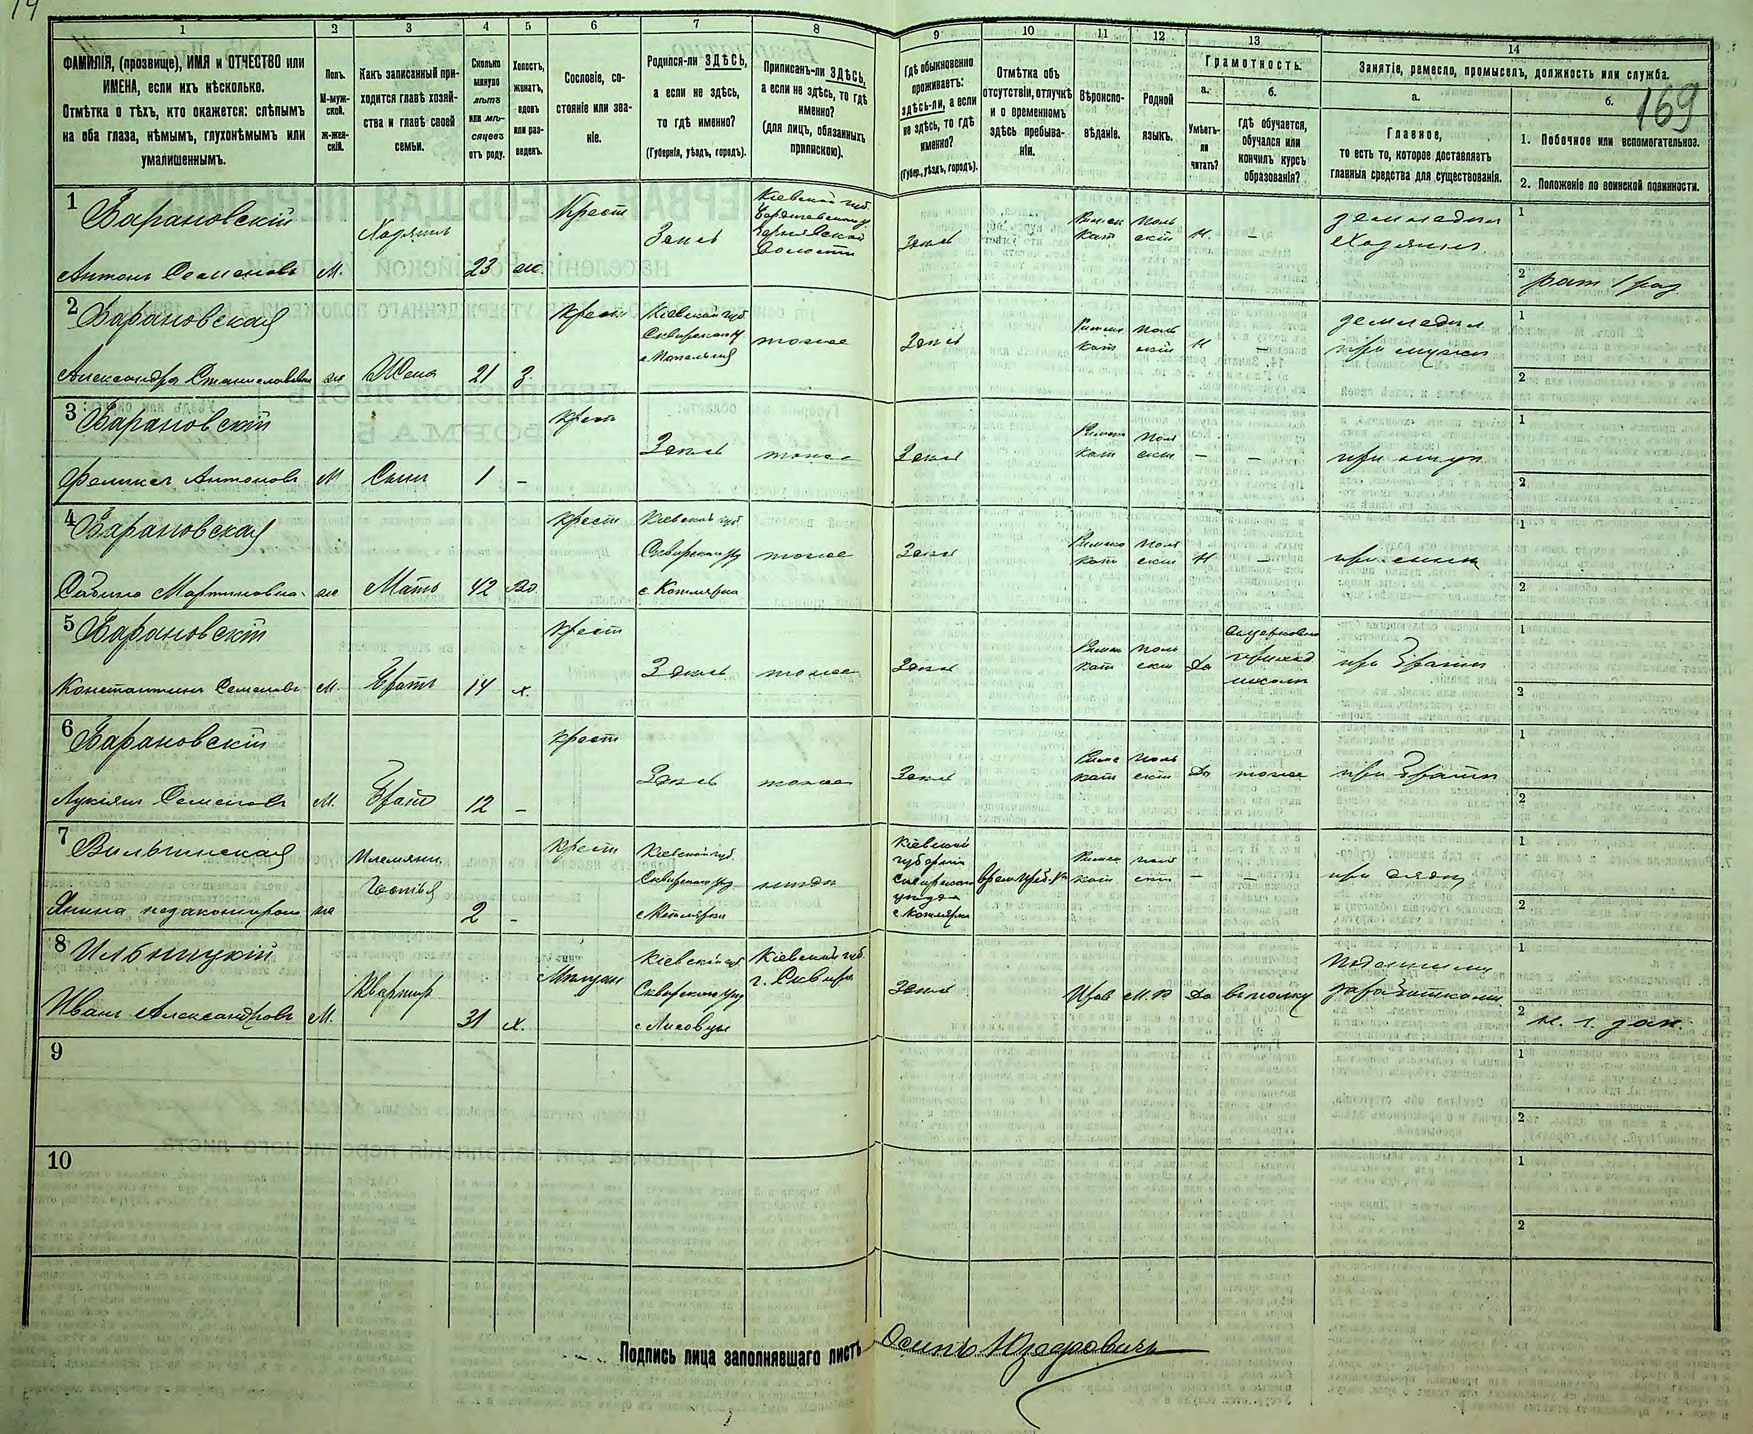 14
1 2 3 4 5 6 7 8 9 10 11 12 13 14
ФАМИЛІЯ, (прозвище), ИМЯ и ОТЧЕСТВО или
ИМЕНА, если ихъ нѣсколько.
Отмѣтка о тѣхъ, кто окажется: слѣпымъ
на оба глаза, нѣмымъ, глухонѣмымъ или
умалишеннымъ.
Полъ.
М-муж-
ской.
ж-жен-
скій.
Какъ записанный при-
ходится главѣ хозяй-
ства и главѣ своей
семьи.
Сколько
минуло
лѣтъ
или мѣ-
сяцевъ
отъ роду.
Холостъ,
женатъ,
вдовъ
или раз-
веденъ.
Сословіе, со-
стояніе или зва-
ніе.
Родился-ли ЗДѢСЬ,
а если не здѣсь,
то гдѣ именно?
(Губернія, уѣздъ, городъ).
Приписанъ-ли ЗДѢСЬ,
а если не здѣсь, то гдѣ
именно?
(для лицъ, обязанныхъ
припискою).
Гдѣ обыкновенно
проживаетъ:
здѣсь-ли, а если
не здѣсь, то гдѣ
именно?
(Губер., уѣздъ, городъ).
Отмѣтка объ
отсутствіи, отлучкѣ
и о временномъ
здѣсь пребыва-
ніи.
Вѣроиспо-
вѣданіе.
Родной
языкъ.
Грамотность.
а.
Умѣетъ-
ли
читать?
б.
Гдѣ обучается,
обучался или
кончилъ курсъ
образованія?
Занятіе, ремесло, промыселъ, должность или служба.
а.
Главное,
то есть то, которое доставляетъ
главныя средства для существованія.
б.
169
1. Побочное или вспомогательное.
2. Положеніе по воинской повинности.
1 Барановскій
Антонъ Семеновъ
М.
Хозяинъ
23
же.
Крест
Здесь
Кіевской губ.
Бердичевскаго у.
волости
Здесь
Римск
кат
Поль
скій
Н.
–
земледел
Хозяинъ
1
2 рат 1 раз
2 Барановская
Александра Станиславовна
же
Жена
21
З.
Крест
Кіевской губ
Сквирскаго у
с. Попельня
тоже
Здесь
Римск
кат
Поль
скій
Н
–
земледел
при мужи
1
2
3 Барановскій
Феликсъ Антоновъ
М
Сынъ
1
–
Крест
Здесь
тоже
Здесь
Римск
кат
Поль
скій
–
–
при отцу
1
2
4 Барановская
Сабина Мартиновна
же
Мать
42
Вд.
Крест
Кіевской губ.
Сквирскаго у
с. Котлярка
тоже
Здесь
Римско
кат
Поль
скій
Н
–
при сынѣ
1
2
5 Барановскій
Константинъ Семеновъ
М.
Братъ
14
х.
Крест
Здесь
тоже
Здесь
Римск
кат
Поль
скій
Да
приход
школы
при Брати
1
2
6 Барановскій
Лукіянъ Семеновъ
М.
Братъ
12
–
Крест
Здесь
тоже
Здесь
Римс
кат
Поль
скій
Да
тоже
при Брати
1
2
7 Вильгинская
Янина
же
Племянн.
2
–
Крест
Кіевской губ.
Сквирскаго у
с Котлярка
Кіевской
губерніи
Сквирскаго
уезда
с Котлярка
Римск
кат
Поль
скій
–
–
при дяди
1
2
8 Ильницкій
Иванъ Александровъ
М.
Квартир
31
х.
Мещан
Кіевской губ
Сквирскаго у
с Лисовцы
Кіевской губ.
г. Сквира
Здесь
Прав
М.Р
Да
в полку
Поденными
заработками
1
2
9
1
2
10
1
2
Подпись лица заполнявшаго листъ Осипъ